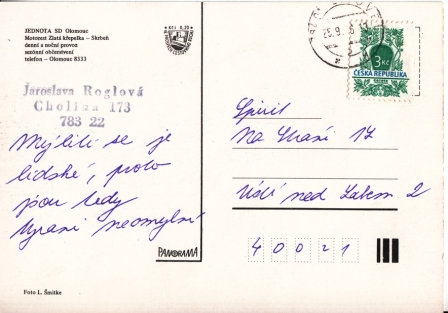 JEDNOTA SD Olomouc
Motorest Zlatá křepelka – Skrbeň
denní a noční provoz
sezónní občerstvení
telefon – Olomouc 8333
Jaroslava Roglová
Cholina 173
783 22
Mýliti se je
lidské, proto
jsou tedy
Vrani neomylní
PANORAMA
Foto L. Šmitke
Kčs 0,20
25.9.
3 Kč
ČESKÁ REPUBLIKA
Spirit
Na Stráni 17
Ústí nad Labem 2
40021